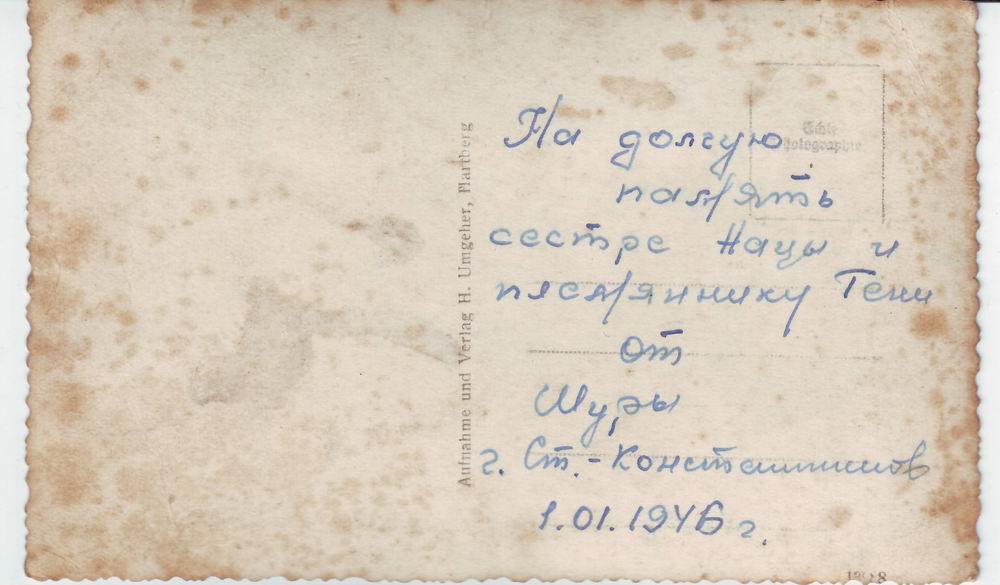 Echte
Photographie
На долгую
память
сестре Нацы и
племяннику Гени
от
Шуры
г. Ст.-Константинов
1.01.1946 г.
Aufnahme und Verlag H. Umgeher, Hartberg